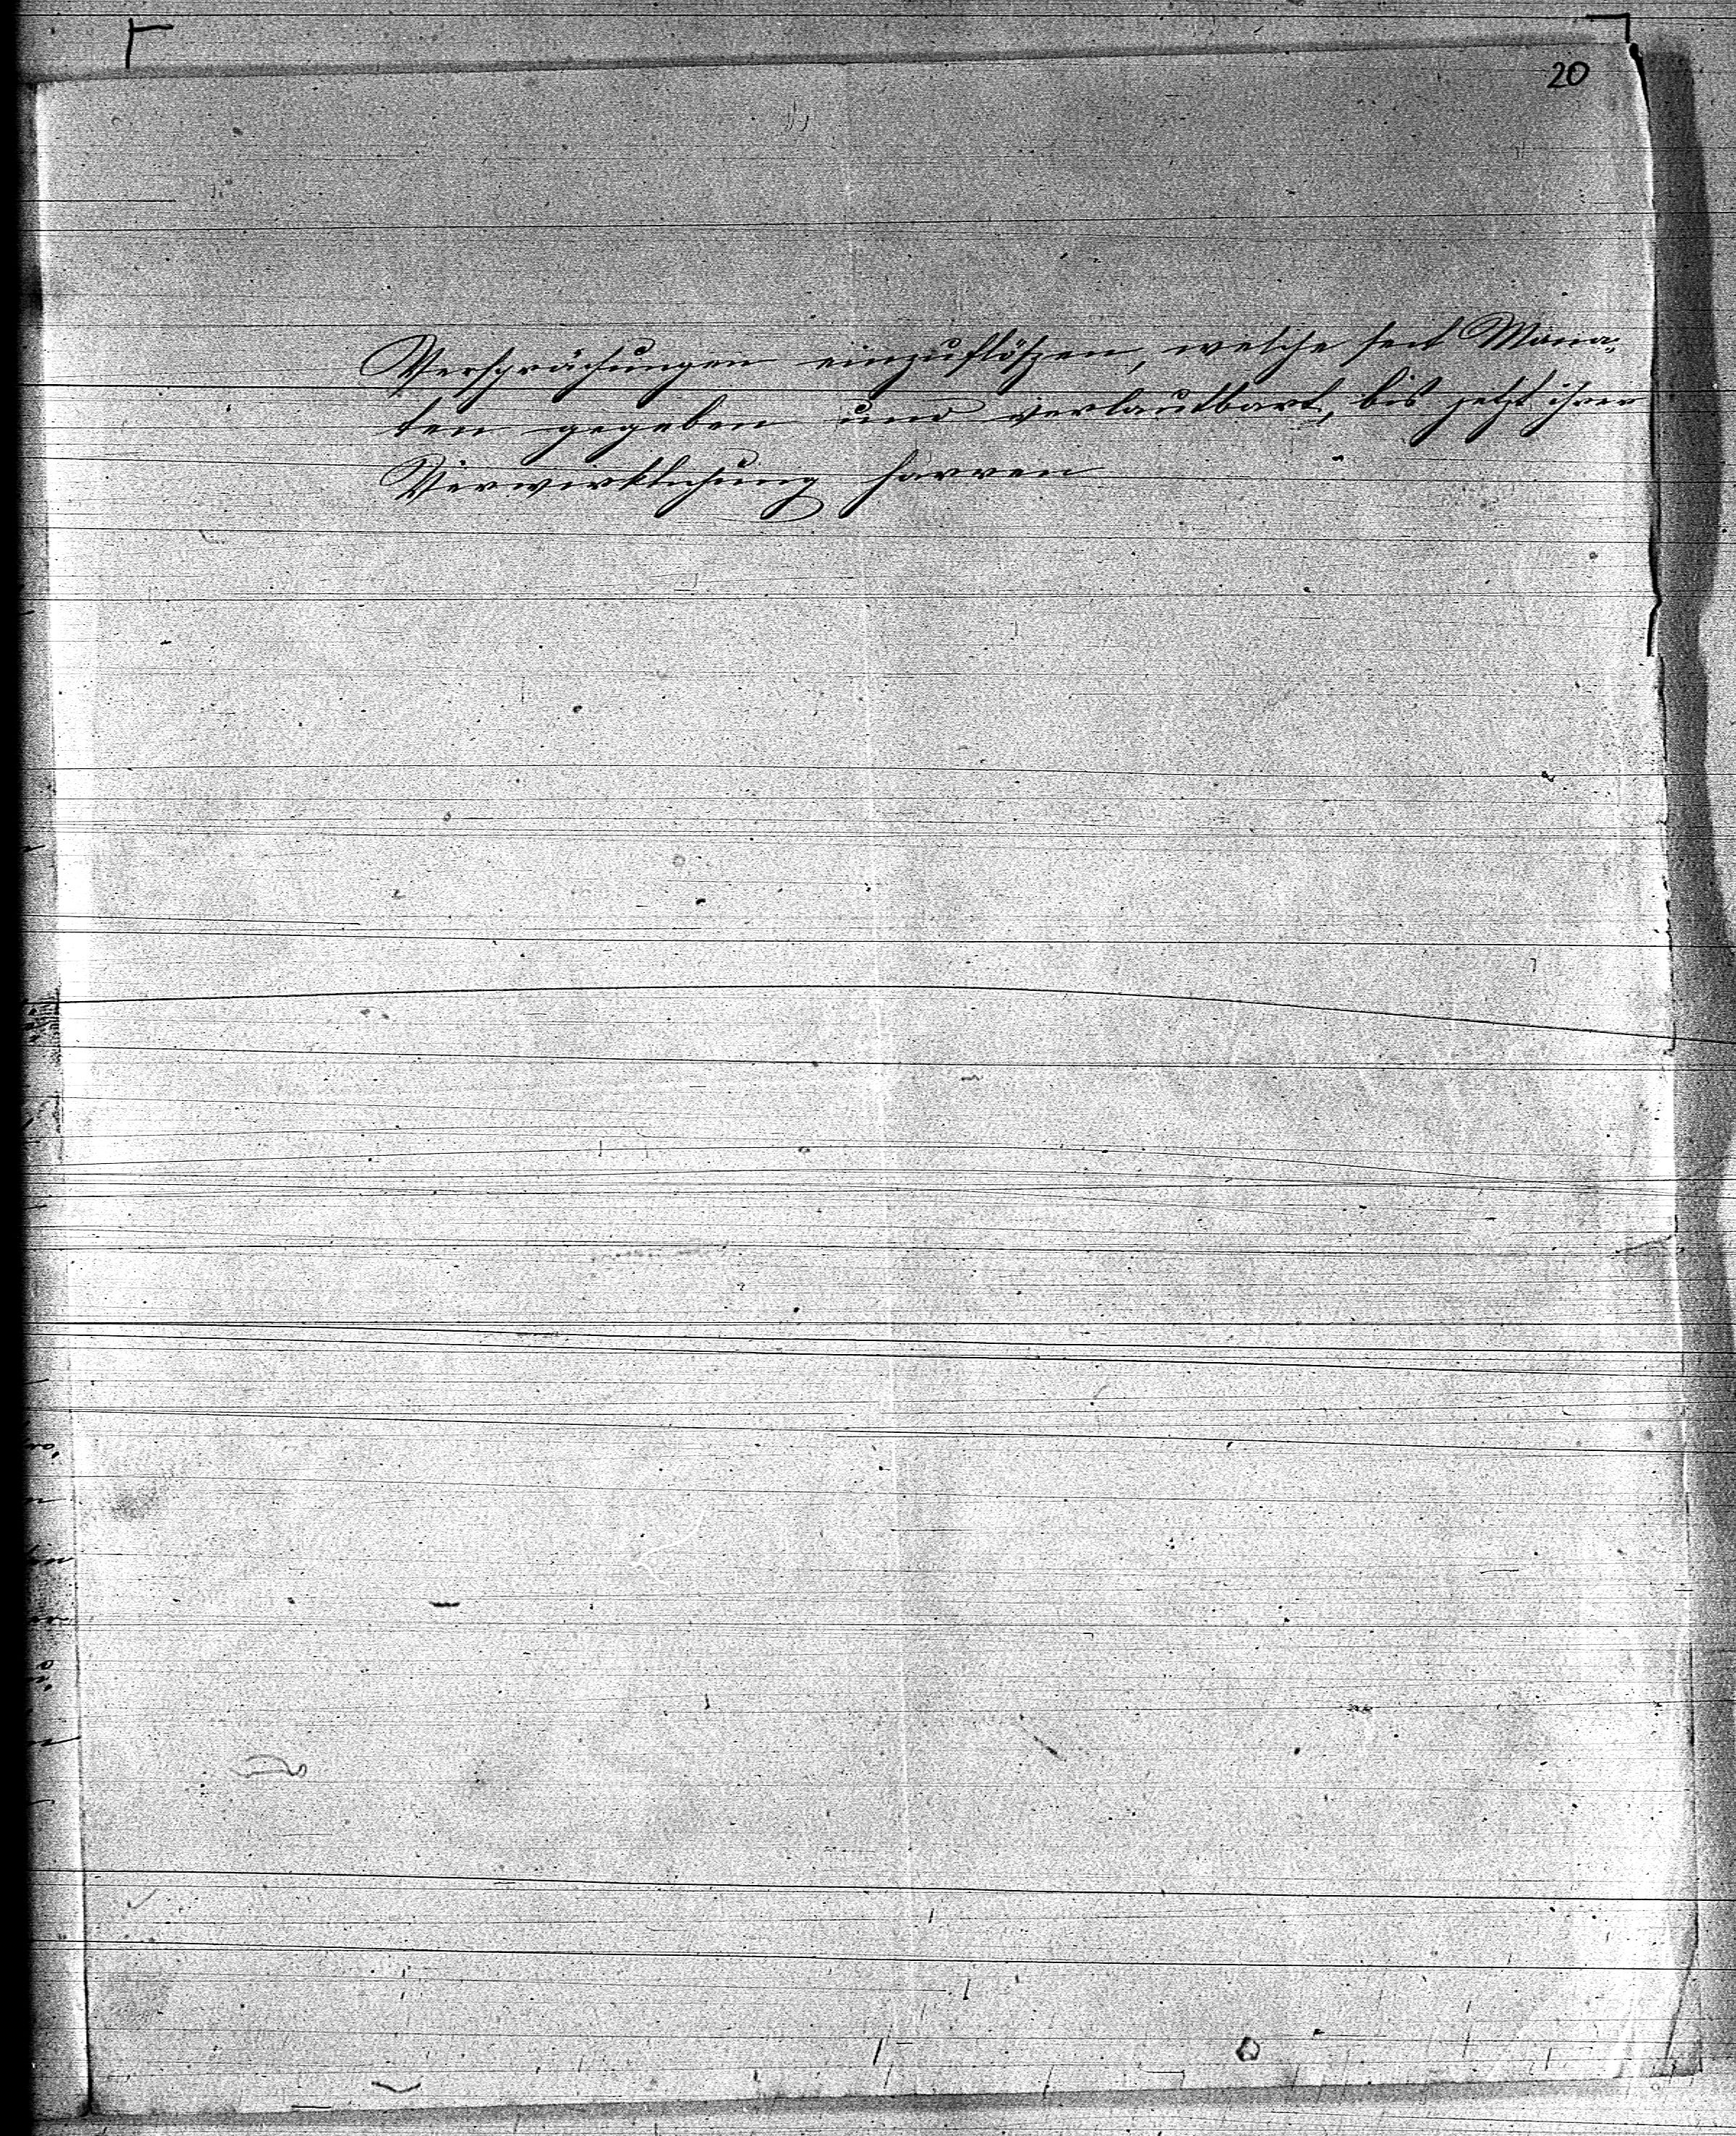 20
Versprächungen einzuflößen, welche seit Mona-
ten gegeben und verlautbart, bis jetzt ihrer
Verwirklichung harren